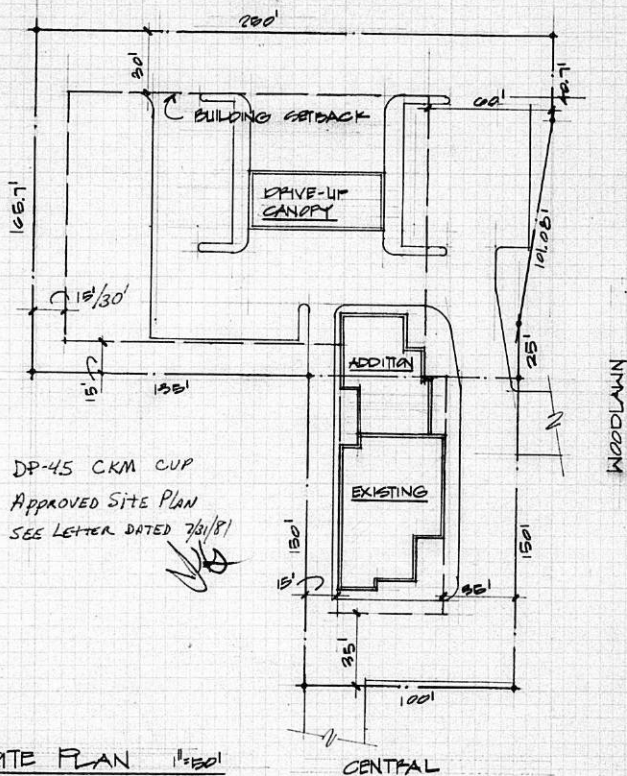 260'
30'
60'
40.7'
BUILDING SETBACK
DRIVE-UP
CANOPY
165.7'
101.08'
15'/30'
ADDITION
25'
15'
135'
WOODLAWN
DP-45 CKM CUP
APPROVED SITE PLAN
SEE LETTER DATED 7/31/81
EXISTING
150'
150'
15'
35'
35'
100'
SITE PLAN 1"=50'
CENTRAL